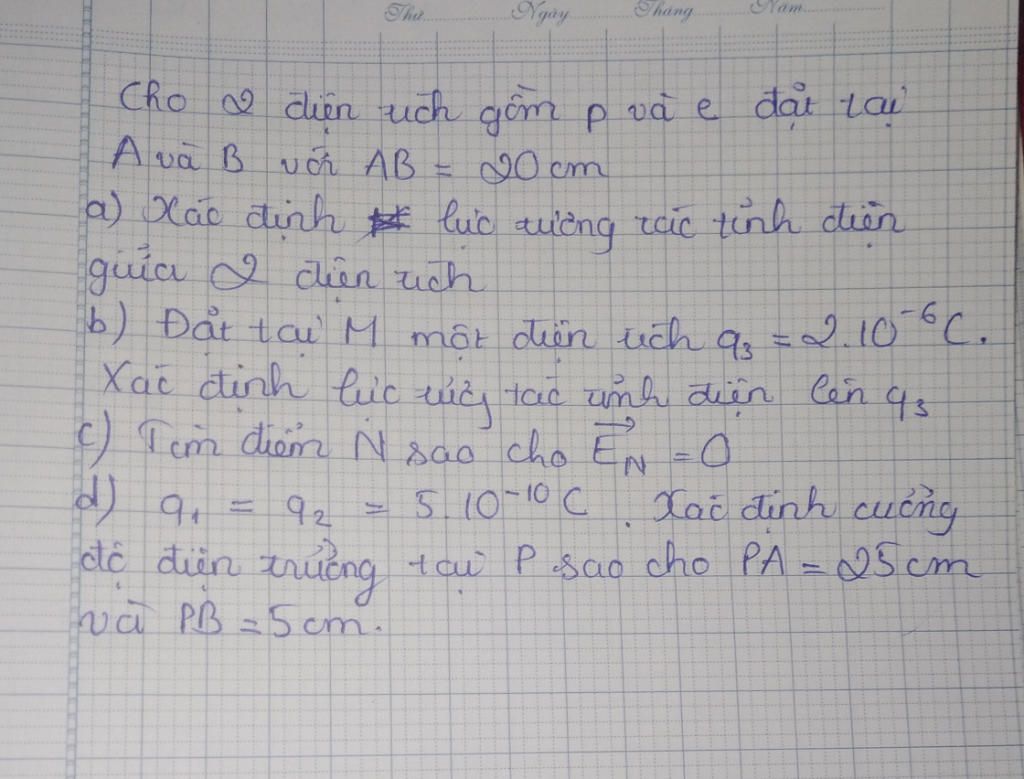 Thứ Ngày Tháng Năm
Cho 2 điện tích gồm p và e đặt tại
A và B với AB = 20 cm
a) Xác định lực tương tác tĩnh điện
giữa 2 điện tích
b) Đặt tại M một điện tích q₃ = 2.10⁻⁶ C.
Xác định lực tương tác tĩnh điện lên q₃
c) Tìm điểm N sao cho E⃗_N = 0
d) q₁ = q₂ = 5.10⁻¹⁰ C. Xác định cường
độ điện trường tại P sao cho PA = 25 cm
và PB = 5 cm.